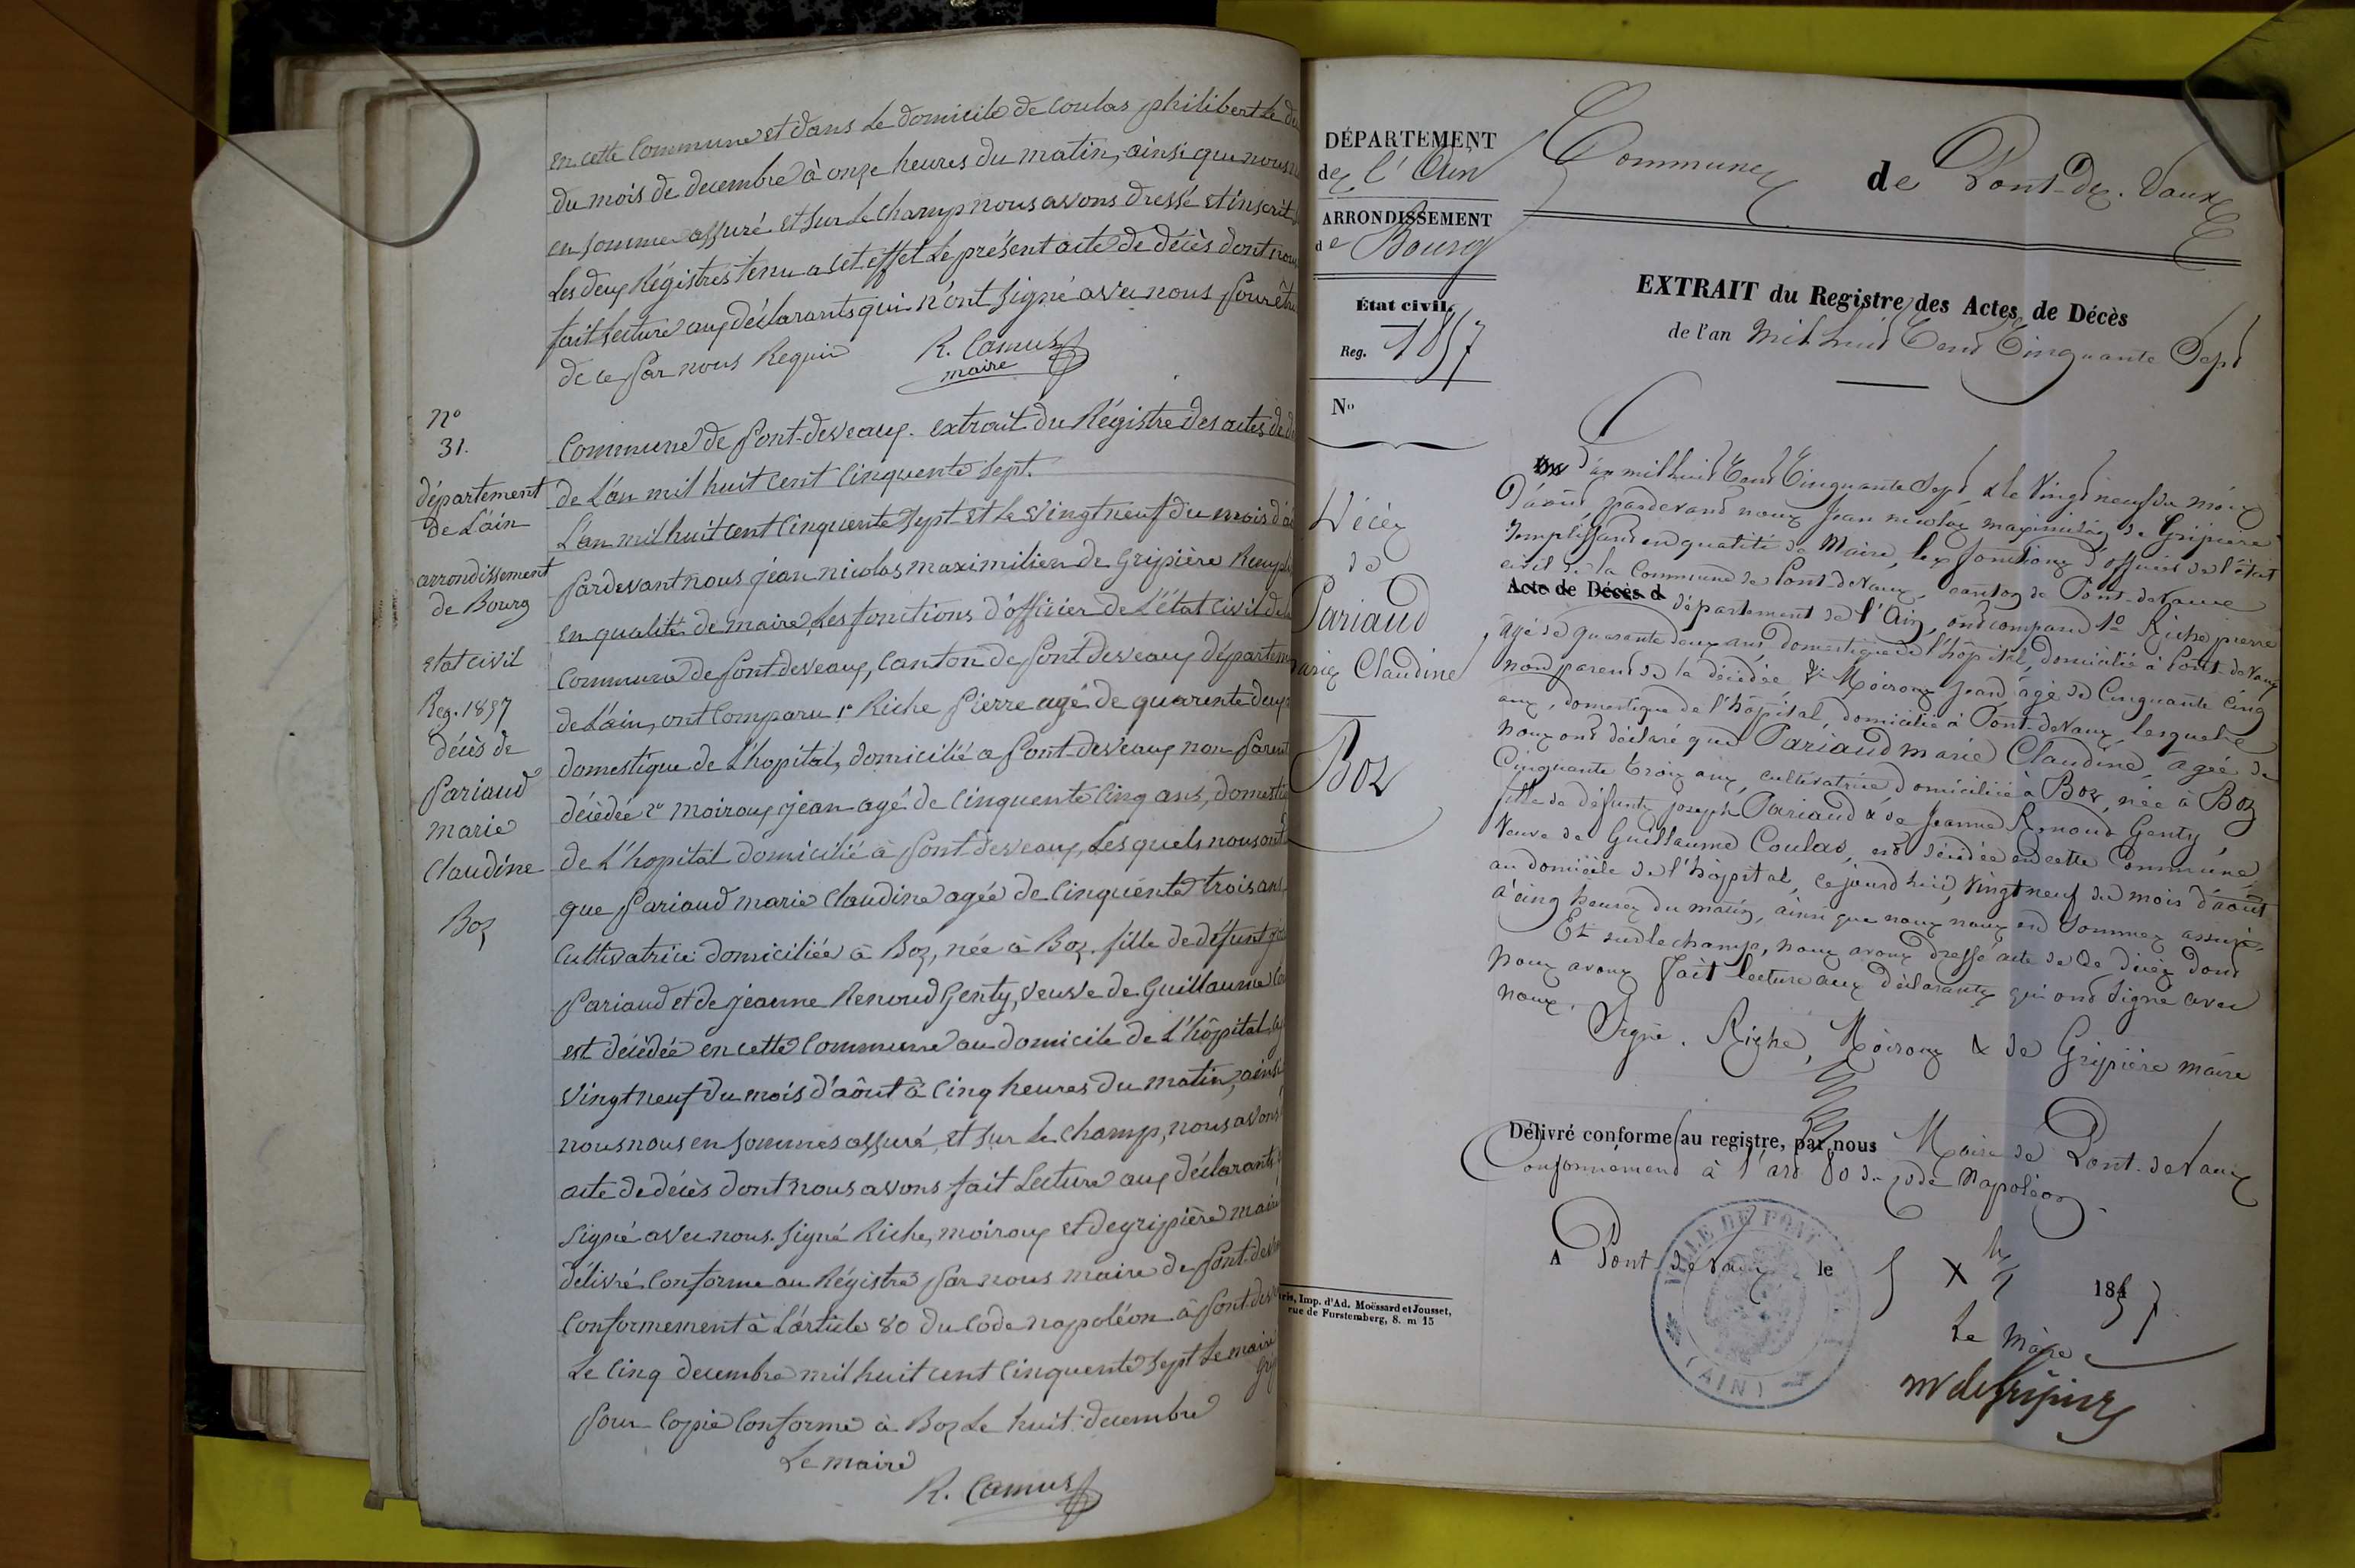 en cette Commune et dans le domicile de Coulas philibert le
du mois de decembre à onze heures du matin, ainsi que nous
en somme assuré et sur le champ nous avons dressé et inscrit
les deux Régistres tenu a cet effet le présent acte de décès dont nous
fait lecture aux déclarants qui n'ont signé avec nous
de ce par nous Requis
R. Camus
maire
N°
31.
département
de L'ain
arrondissement
de Bourg
etat civil
Reg. 1857
décès de
Pariaud
marie
Claudine
Boz
Commune de Pont-deveaux. extrait du Régistre des actes de
de L'an mil huit cent Cinquente sept.
L'an mil huit cent Cinquente sept et le vingt neuf du mois
Pardevant nous jean nicolas maximilien de Gripière
en qualité de maire, les fonctions d'officier de L'état civil de
Commune de Pont deveaux, Canton de Pont deveaux
de L'ain, ont Comparu 1° Riche Pierre agé de quarente deux
domestique de L'hopital, domicilié a Pont-deveaux non Parent
décèdée 2° moiroux jean agé de cinquente cinq ans,
de L'hopital domicilié à Pont deveaux, Les quels nous ont
que Pariaud marie Claudine agée de Cinquente trois ans
Cultivatrice domiciliée à Boz, née à Boz. fille de défunt
Pariaud et de jeanne Renoud Genty, veuve de Guillaume
est décèdée en cette Commune au domicile de L'hôpital,
vingt neuf du mois d'août à Cinq heures du matin, ainsi
nous nous en sommes assuré, et sur le Champ, nous avons
acte de décès dont nous avons fait Lecture aux déclarants
signé avec nous. signé Riche, moiroux et degripière maire
délivré Conforme au Régistre Par nous maire de
Conformement à L'article 80 du Code napoléon à
Le Cinq decembre mil huit cent Cinquente sept Le maire
Pour Copie Conforme à Boz Le huit decembre
Le maire
R. Camus
DÉPARTEMENT
de l'Ain
ARRONDISSEMENT
de Bourg
État civil.
Reg. 1857
N°
Décès
de
Pariaud
Marie Claudine
Boz
Paris, Imp. d'Ad. Moëssard et Jousset,
rue de Furstemberg, 8. m 15
Commune de Pont-de-Vaux
EXTRAIT du Registre des Actes de Décès
de l'an mil huit Cent Cinquante Sept
L'an mil huit Cent Cinquante Sept & le Vingt neuf du mois
d'août pardevant nous Jean nicolas maximilien de Gripière
remplissant en qualité de Maire, les fonctions d'officier de l'état
civil de la Commune de Pont-deVaux, canton de Pont-deVaux
Acte de Décès d département de l'Ain, ont comparu 1° Riche pierre
agé de quarante deux ans domestique de l'hôpital, domicilié à Pont-deVaux
non parent de la décédée 2° Moiroux Jean âgé de Cinquante cinq
ans, domestique de l'hôpital, domicilié à Pont-deVaux, lesquels
nous ont déclaré que Pariaud marie Claudine, agée de
Cinquante trois ans, cultivatrice domiciliée à Boz, née à Boz
fille de défunt joseph Pariaud & de Jeanne Renoud Genty,
Veuve de Guillaume Coulas, est décédée en cette Commune,
au domicile de l'hôpital, ce jourd'huid, vingt neuf du mois d'août
à cinq heures du matin, ainsi que nous nous en sommes assuré.
Et sur le champ, nous avons dressé acte de décès dont
nous avons fait lecture aux déclarants qui ont signé avec
nous.
Signé. Riche, Moiroux & de Gripière maire
Délivré conforme au registre, par nous Maire de Pont-deVaux
Conformément à l'art 80 du code Napoléon.
A Pont-deVaux le 5 Xbre 1857
Le Maire
VILLE DE PONT
(AIN)